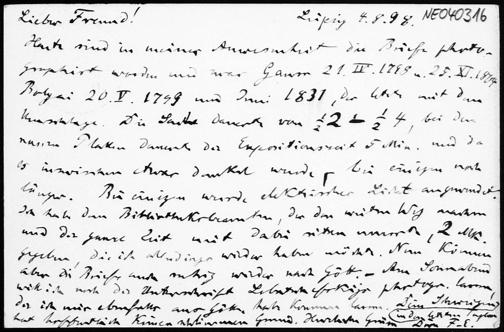 Lieber Freund! Leipzig 4.8.98. NE040316
Heute sind in meiner Anwesenheit die Briefe photo-
graphirt worden und zwar Gauss 21. IV. 1795 u. 25. XI. 1804
Bolyai 20. V. 1799 und Juni 1831, der letzte mit dem
Umschlage. Die Sache dauerte von ½2 – ½4, bei den
nassen Platten dauerte die Expositionszeit 5 Min. und da
es inzwischen etwas dunkel wurde, bei einigen noch
länger. Bei einigen wurde elektrisches Licht angewendet.
Ich habe dem Bibliotheksbeamten, der den weiten Weg machen
und die ganze Zeit mit dabei sitzen musste, 2 Mk.
gegeben, die ich allerdings wieder haben möchte. Nun können
aber die Briefe auch ruhig wieder nach Gött. – Am Sonnabend
will ich noch die Unterschrift photogr. lassen,
die ich mir ebenfalls aus Göttg. habe kommen lassen.
hat hoffentlich keinen schlimmen Grund. Herzlichen Gruss Dein F. E.